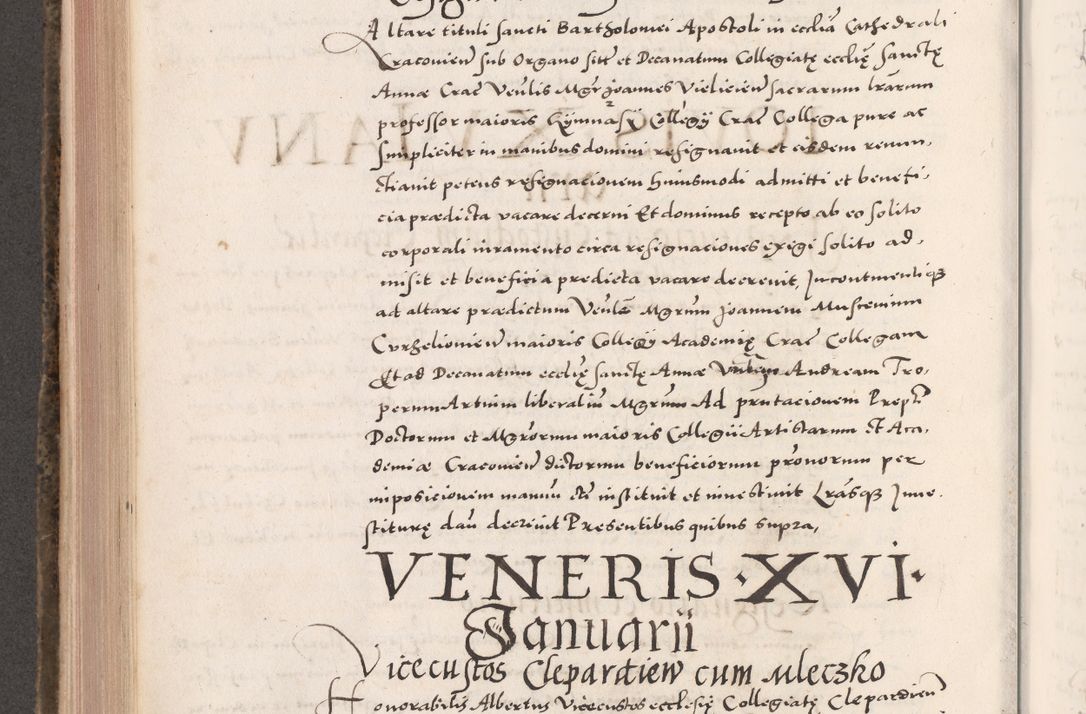 Altare tituli sancti Bartholomei Apostoli in ecclia Cathedrali
Cracovien sub Organo sitt et Decanatum Collegiatę ecclię Sanctę
Annæ Crac Venlis Mgr Joannes Vielicien sacrarum lrarum
professor maioris Gymnasÿ Collegÿ Crac Collega pure ac
simpliciter in manibus domini resignavit et eisdem renun-
ctiavit petens resignacionem huiusmodi admitti et benefi-
cia prædicta vacare decerni Et dominus recepto ab eo solito
corporali iuramento circa resignaciones exigi solito ad-
misit et beneficia predicta vacare decrevit, Incontinentiqȝ
ad altare prædictum Venlem Mgrum Joannem Muscenium
Curzelionien maioris Collegÿ Academię Crac Collegam
Et ad Decanatum ecclię Sanctę Annæ Andream Tro-
perum Artium liberaliu Mgrum Ad pntacionem Prept
Doctorum et Mgrorum maioris Collegii Artistarum et Aca-
demiæ Cracovien dictorum beneficiorum pronorum per
imposicionem manuu etc instituit et investivit Lrasqȝ Inve-
stiturę dan decrevit Presentibus quibus supra,
VENERIS · XVI ·
Januarii
Vicecustos Clepardien cum Mleczko
Honorabilis Albertus Vicecustos ecclesię Collegiatę Clepardien